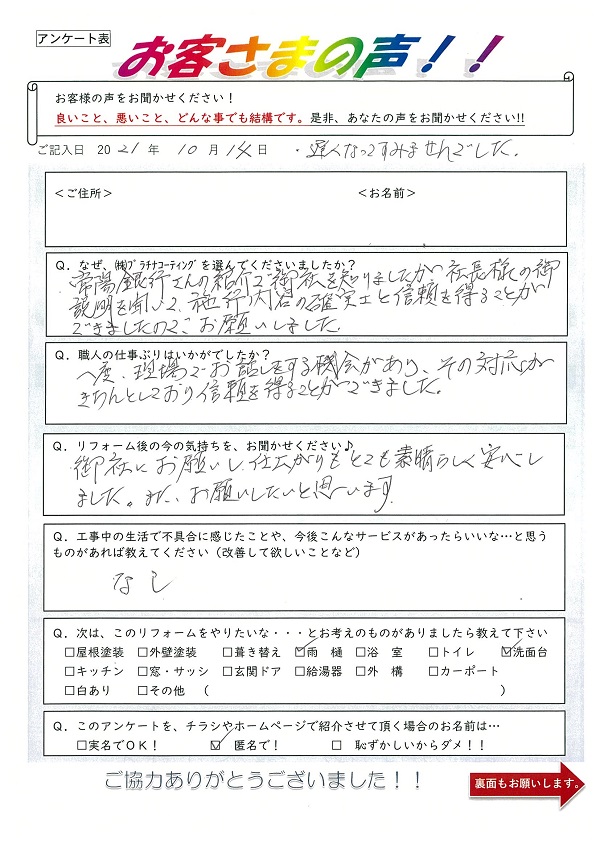 アンケート表
お客さまの声！！
お客様の声をお聞かせください！
良いこと、悪いこと、どんな事でも結構です。是非、あなたの声をお聞かせください!!
ご記入日 2021年 10月 14日 ・遅くなってすみませんでした。
＜ご住所＞ ＜お名前＞
Q．なぜ、㈱ﾌﾟﾗﾁﾅｺｰﾃｨﾝｸﾞを選んでくださいましたか？
常陽銀行さんの紹介で御社を知りましたが社長様の御
説明を聞いて、施行内容の確実さと信頼を得ることが
できましたので、お願いしました。
Q．職人の仕事ぶりはいかがでしたか？
一度、現場でお話しをする機会があり、その対応が
きちんとしており信頼を得ることができました。
Q．リフォーム後の今の気持ちを、お聞かせください♪
御社にお願いし、仕上がりもとても素晴らしく安心し
ました。また、お願いしたいと思います。
Q．工事中の生活で不具合に感じたことや、今後こんなサービスがあったらいいな…と思う
ものがあれば教えてください（改善して欲しいことなど）
なし
Q．次は、このリフォームをやりたいな・・・とお考えのものがありましたら教えて下さい
□屋根塗装 □外壁塗装 □葺き替え ☑雨 樋 □浴 室 □トイレ ☑洗面台
□キッチン □窓・サッシ □玄関ドア □給湯器 □外 構 □カーポート
□白あり □その他 （ ）
Q．このアンケートを、チラシやホームページで紹介させて頂く場合のお名前は…
□実名でOK！ ☑ 匿名で！ □ 恥ずかしいからダメ！！
ご協力ありがとうございました！！
裏面もお願いします。